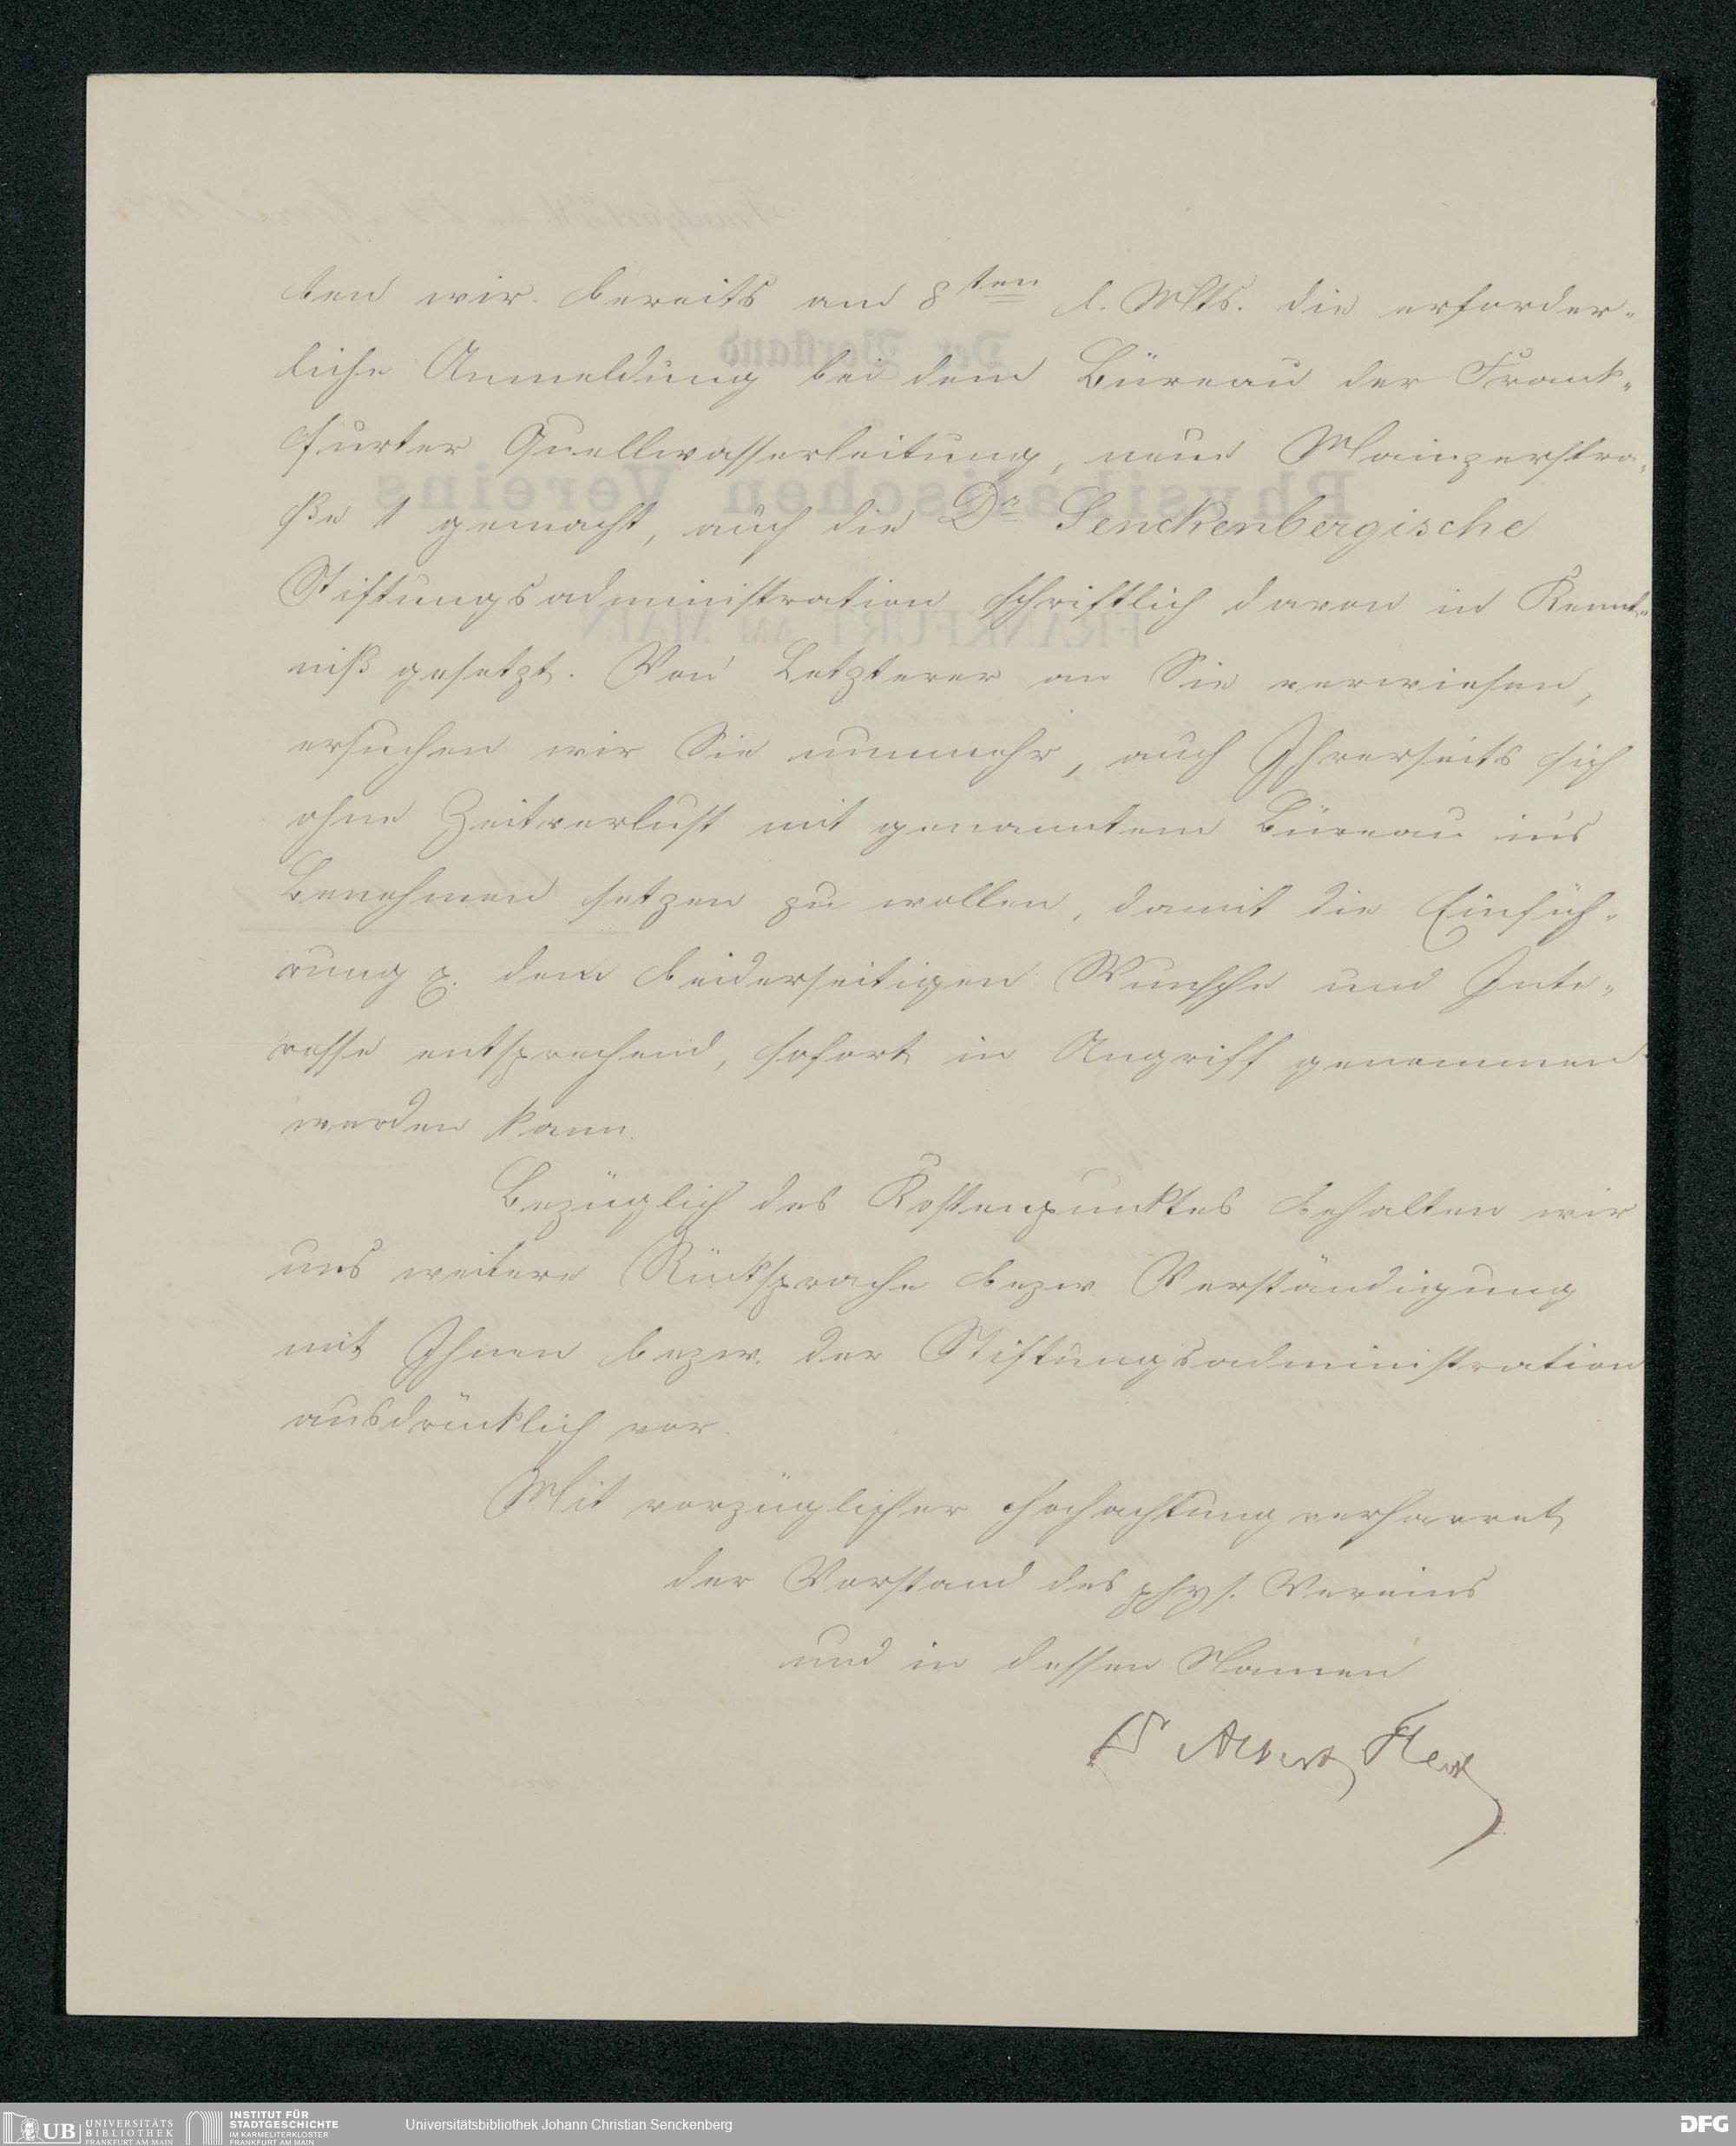 ben wir bereits am 8ten l. Mts. die erforder-
liche Anmeldung bei dem Büreau der Frank-
furter Quellwasserleitung, neue Mainzerstra-
ße 1 gemacht, auch die Dr Senckenbergische
Stiftungsadministration schriftlich davon in Kennt-
niß gesetzt. Von Letzterer an Sie verwiesen,
ersuchen wir Sie nunmehr, auch Ihrerseits sich
ohne Zeitverlust mit genanntem Büreau in's
Benehmen setzen zu wollen, damit die Einfüh-
rung p. dem beiderseitigen Wunsche und Inte-
resse entsprechend, sofort in Angriff genommen
werden kann.
Bezüglich des Kostenpunktes behalten wir
uns weitere Rücksprache bezw. Verständigung
mit Ihnen bezw. der Stiftungsadministration
ausdrücklich vor.
Mit vorzüglicher Hochachtung verharret
der Vorstand des phys. Vereins
und in dessen Namen
Dr Albert
UB UNIVERSITÄTS
BIBLIOTHEK
FRANKFURT AM MAIN
INSTITUT FÜR
STADTGESCHICHTE
IM KARMELITERKLOSTER
FRANKFURT AM MAIN
Universitätsbibliothek Johann Christian Senckenberg
DFG